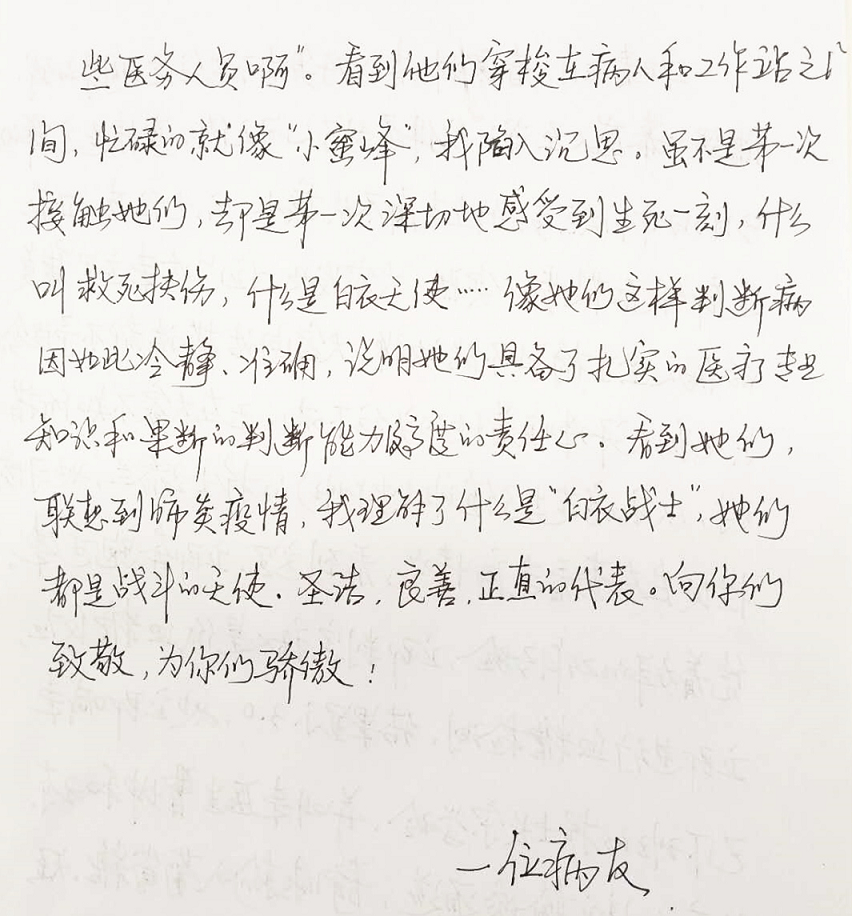 些医务人员啊"。看到他们穿梭在病人和工作站之
间，忙碌的就像"小蜜蜂"，我陷入沉思。虽不是第一次
接触她们，却是第一次深切地感受到生死一刻，什么
叫救死扶伤，什么是白衣天使……像她们这样判断病
因如此冷静、准确，说明她们具备了扎实的医疗专业
知识和果断的判断能力及高度的责任心。看到她们，
联想到肺炎疫情，我理解了什么是"白衣战士"，她们
都是战斗的天使、圣洁，良善，正直的代表。向你们
致敬，为你们骄傲！
一位病友